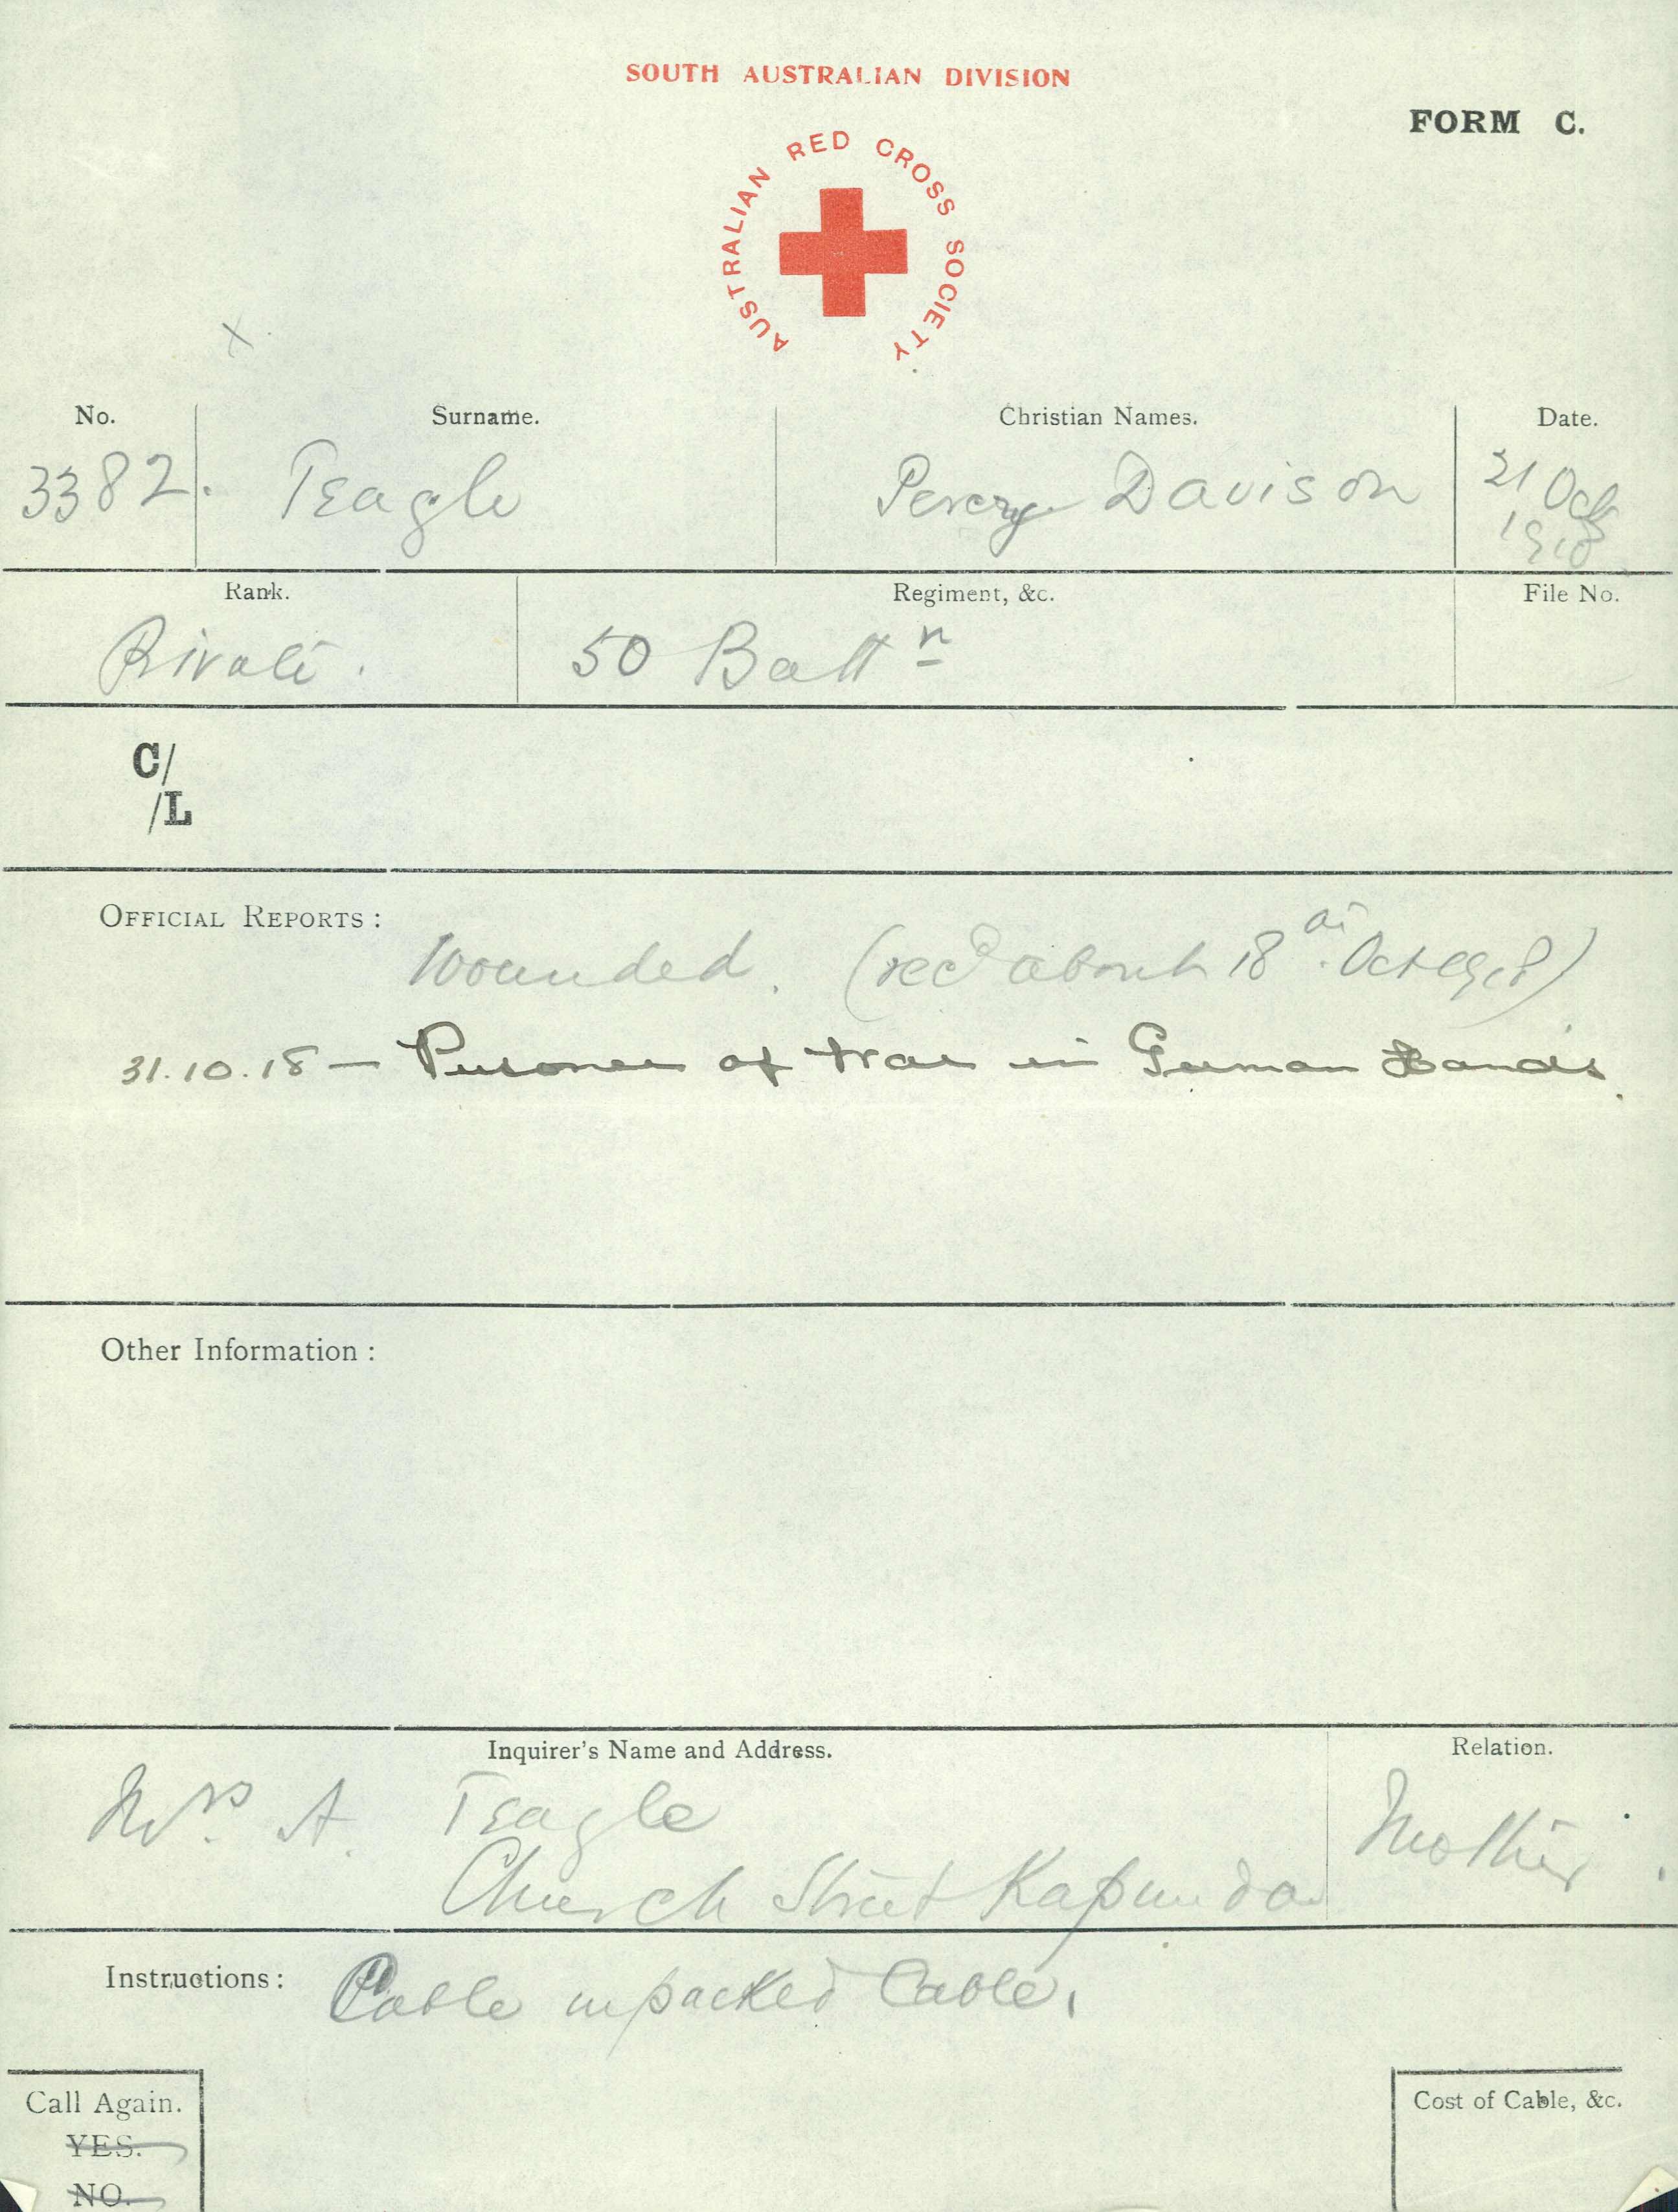 SOUTH AUSTRALIAN DIVISION
FORM C.
AUSTRALIAN RED CROSS SOCIETY
No. Surname. Christian Names. Date.
3382. Teagle Percy Davison 21 Oct
1918
Rank. Regiment, &c. File No.
Private. 50 Battn
C/
/L
OFFICIAL REPORTS:
Wounded. (recd about 18 Oct 1918)
31.10.18 — Prisoner of War in German Hands.
Other Information:
Inquirer's Name and Address. Relation.
Mrs. A. Teagle Mother.
Church Street Kapunda
Instructions: Cable packed Cable.
Call Again. Cost of Cable, &c.
YES.
NO.